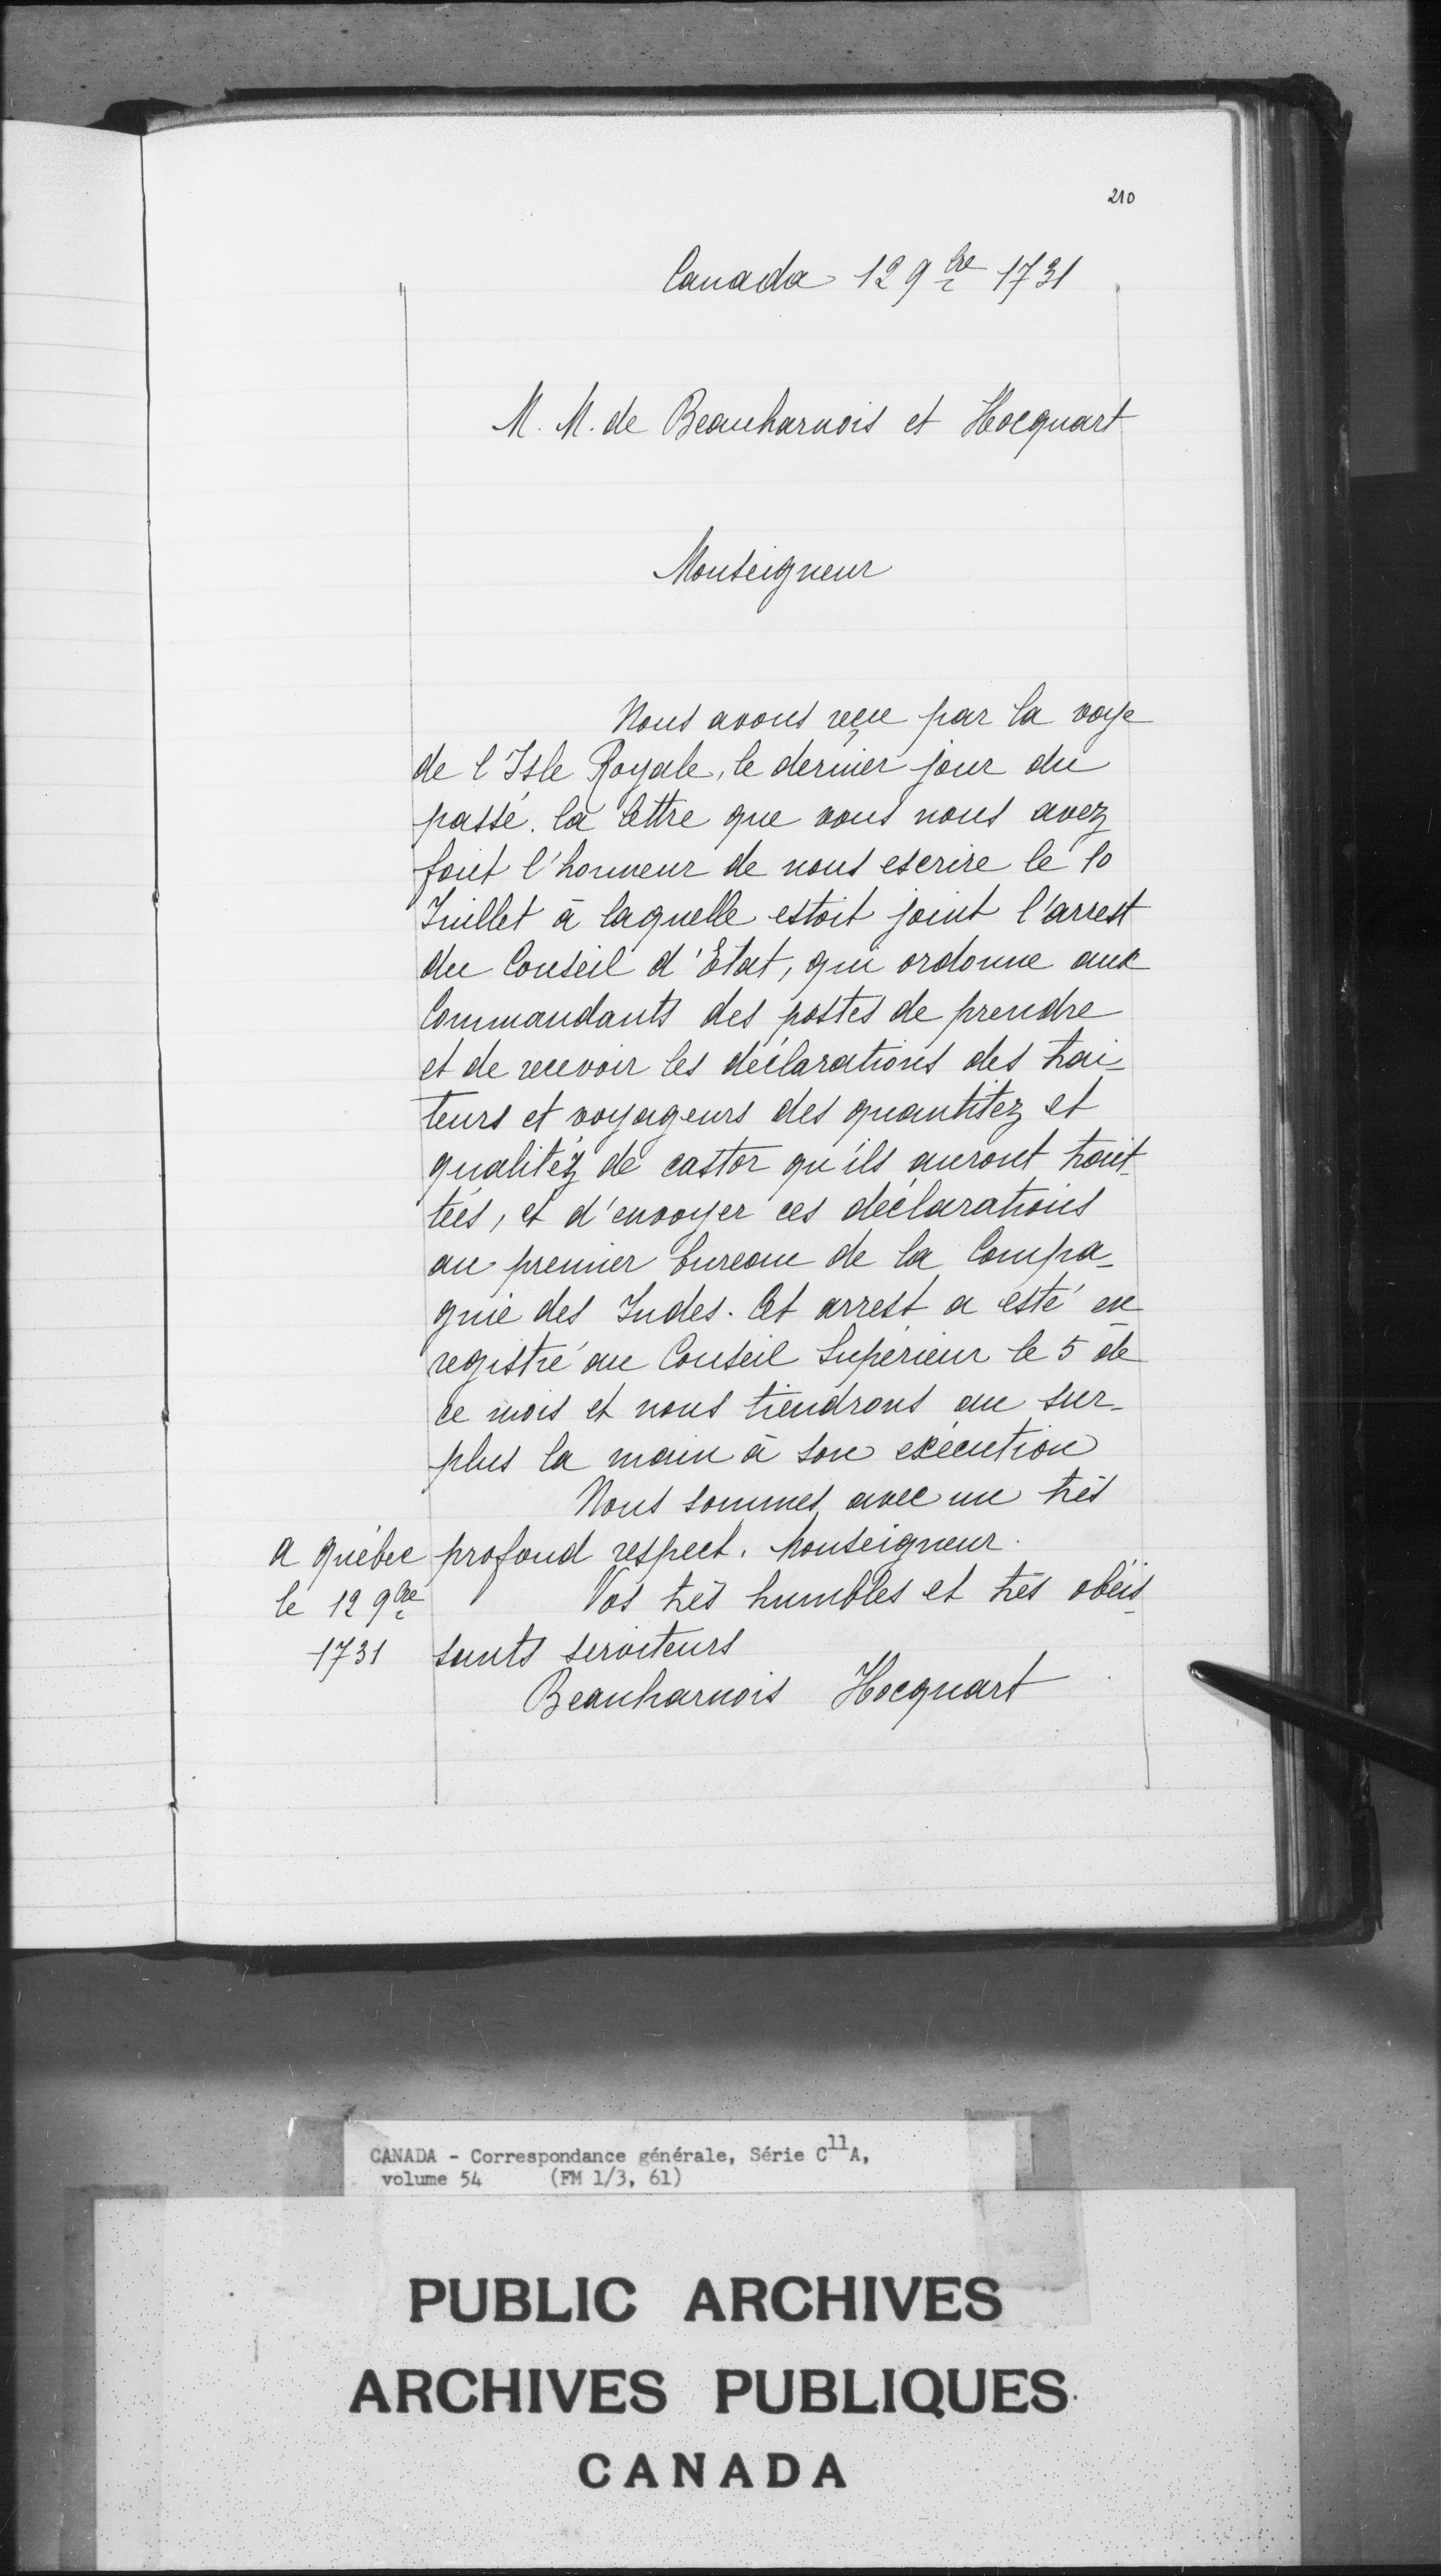 210
Canada 12 9bre 1731
M. M. de Beauharnois et Hocquart
Monseigneur
Nous avons reçue par la voye
de l'Isle Royale, le dernier jour du
passé. la lettre que vous nous avez
fait l'honneur de nous escrire le 10
Juillet à laquelle estoit joint l'arrest
du Conseil d'Etat, qui ordonne aux
Commandants des postes de prendre
et de recevoir les déclarations des trai-
teurs et voyageurs des quantitez et
qualitéz de castor qu'ils auront trait-
tées, et d'envoyer ces déclarations
au premier bureau de la Compa-
gnie des Indes. Cet arrest a esté en
registré au Conseil Supérieur le 5 de
ce mois et nous tiendrons au sur-
plus la main à son exécution
Nous sommes avec un très
a québec profond respect. Monseigneur.
le 12 9bre Vos très humbles et très obéis-
1731 sants serviteurs
Beauharnois Hocquart
CANADA - Correspondance générale, Série C11A,
volume 54 (FM 1/3, 61)
PUBLIC ARCHIVES
ARCHIVES PUBLIQUES
CANADA